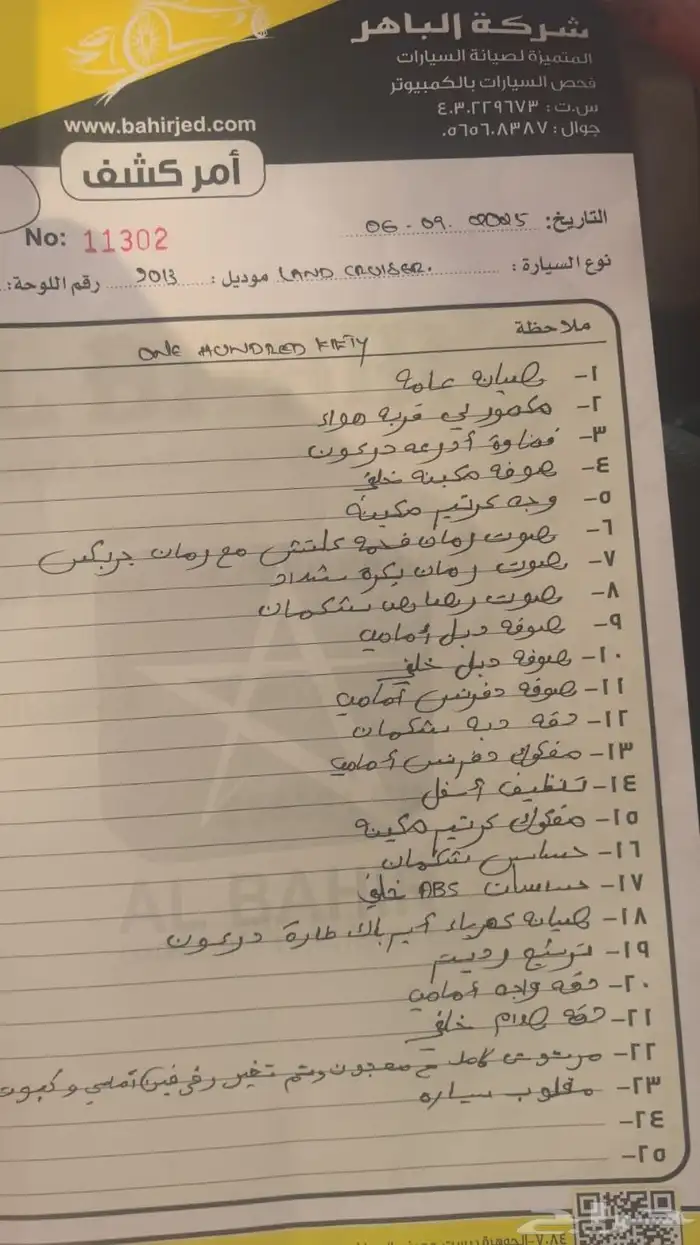 شركة الباهر
المتميزة لصيانة السيارات
فحص السيارات بالكمبيوتر
س.ت: ٤.٣.٢٢٩٦٧٣
جوال: ٠٥٦٥٦.٨٣٨٧.
www.bahirjed.com
أمر كشف
No: 11302
التاريخ: 06-09.2025
نوع السيارة: LAND CRUISER. موديل: 2013 رقم اللوحة:
ملاحظة
ONE HUNDRED FIFTY
١- صيانه عامه
٢- مكسور لي قربه هواء
٣- قضاوة أذرعه دركسون
٤- صوفه مكينه خلفي
٥- وجه كرتير مكينه
٦- صوت رمان فحمه كلتش مع رمان جربكس
٧- صوت رمان بكره شداد
٨- صوت رصاص شكمان
٩- صوفه دبل أمامي
١٠- صوفه دبل خلفي
١١- صوفه دفرنس أمامي
١٢- دقه دبه شكمان
١٣- مفكوك دفرنس أمامي
١٤- تنظيف أسفل
١٥- مفكوك كرتير مكينه
١٦- حساس شكمان
١٧- حساسات ABS خلفي
١٨- صيانه كهرباء أير باك طارة دركسون
١٩- ترشيح رديتر
٢٠- دقه واجه أمامي
٢١- دقه صدام خلفي
٢٢- مرشوش كامل مع معجون وتم تغير رفرفين أمامي وكبوت
٢٣- مقلوب سياره
٢٤-
٢٥-
AL BAHI